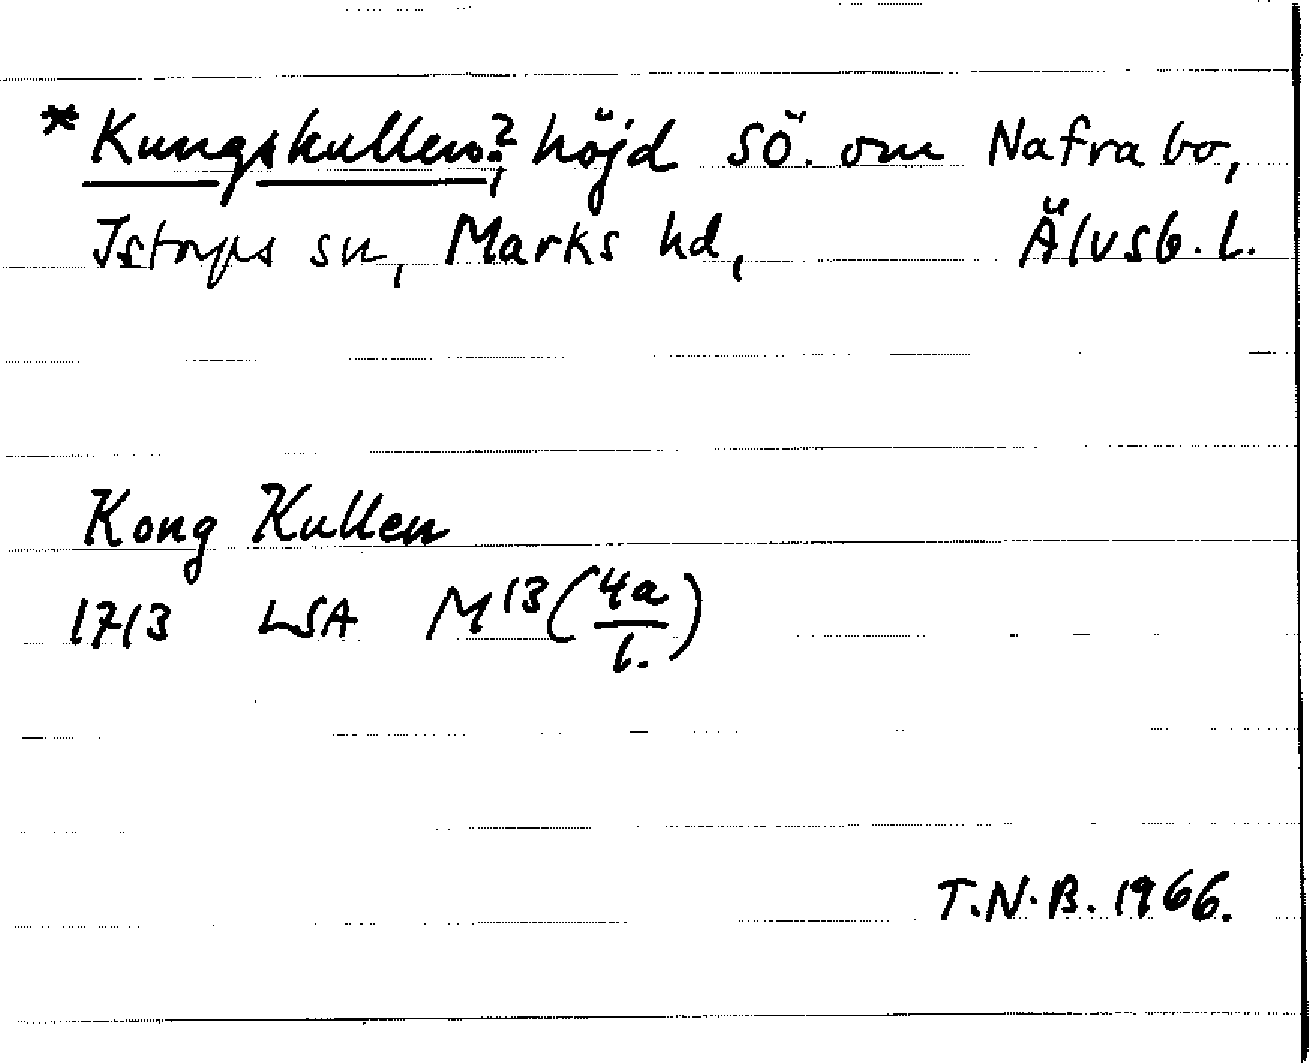 *Kungskullen?, höjd SÖ. om Nafrabo,
Istorps sn, Marks hd, Älvsb. l.
Kong Kullen
1713 LSA M13(4a/1.)
T.N.B. 1966.